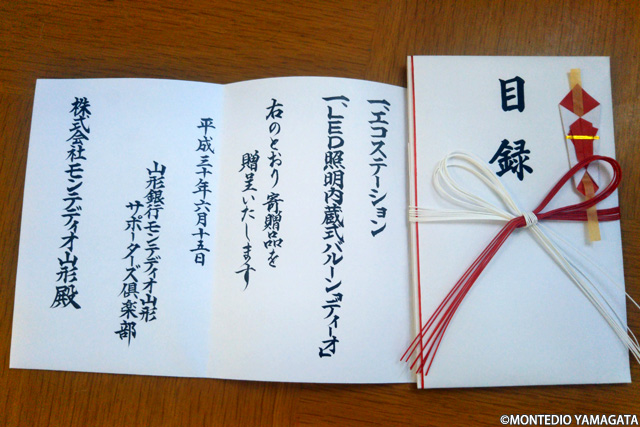 目録
一、エコステーション
一、LED照明内蔵式バルーン『ディーオ』
右のとおり寄贈品を
贈呈いたします
平成三十年六月十五日
山形銀行モンテディオ山形
サポーターズ倶楽部
株式会社モンテディオ山形殿
©MONTEDIO YAMAGATA